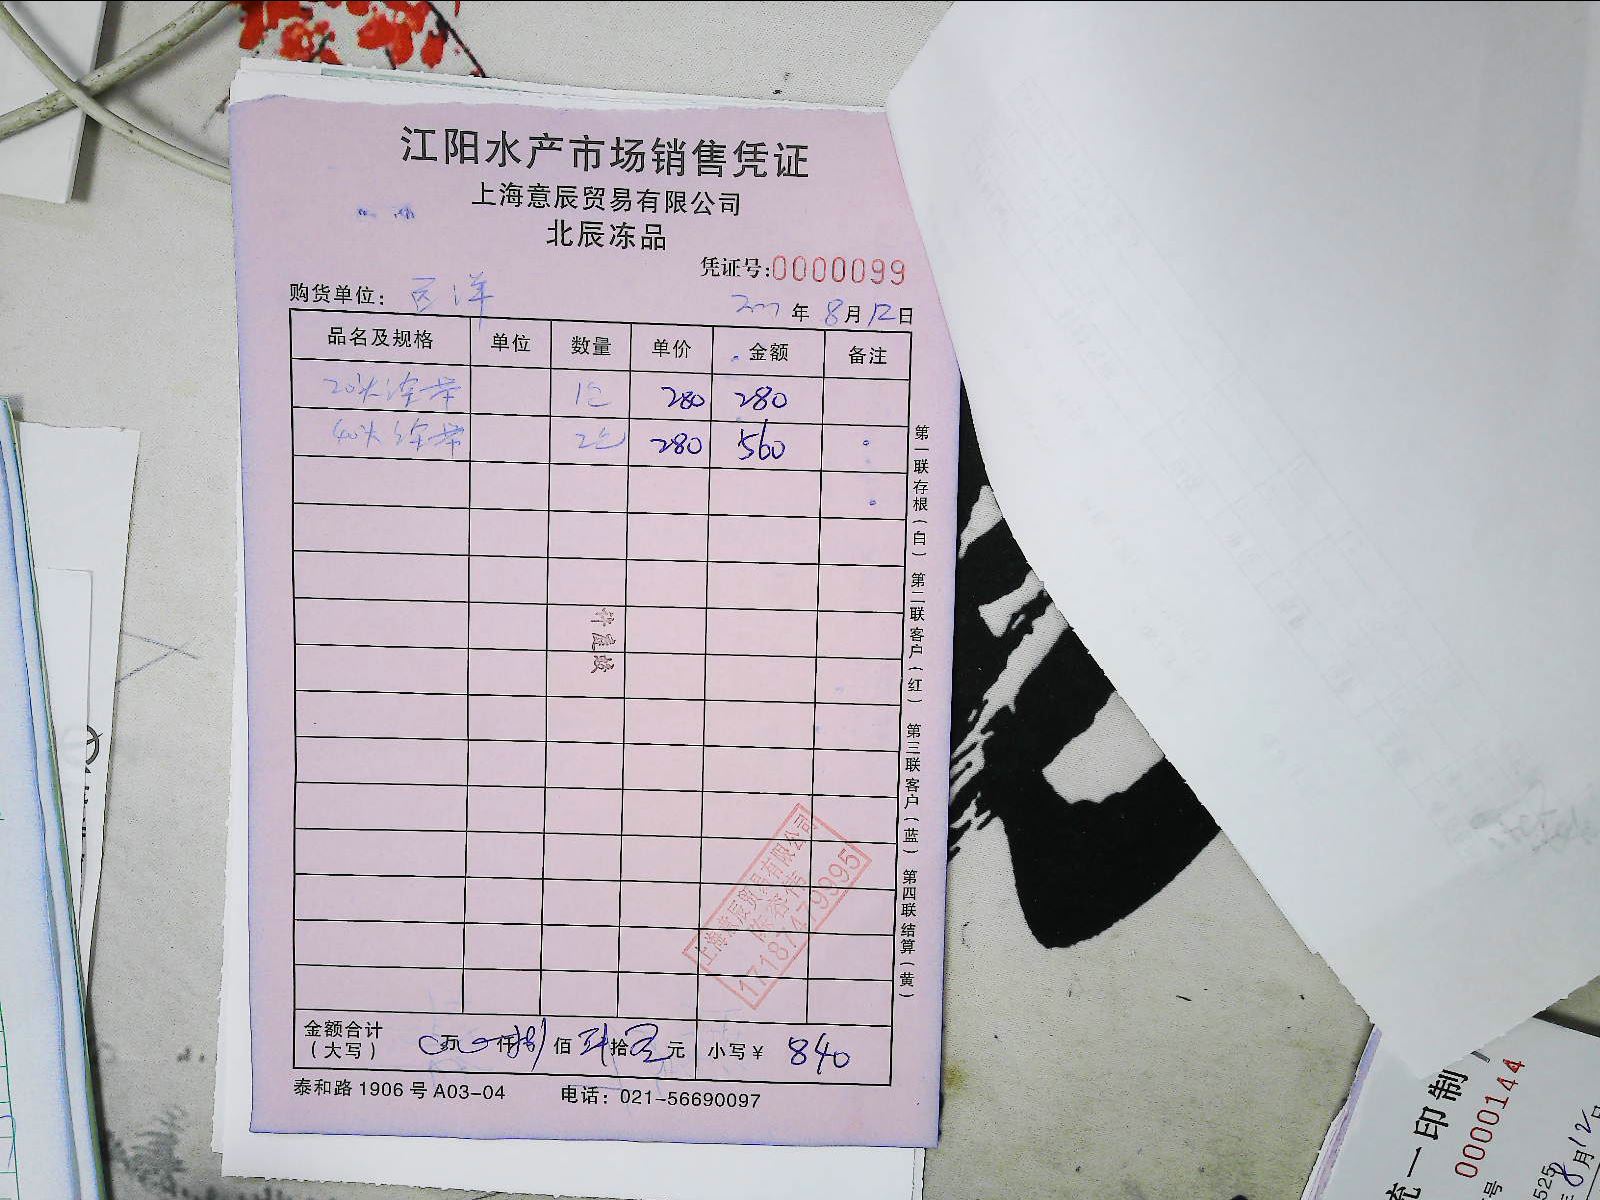 江阳水产市场销售凭证
上海意辰贸易有限公司
北辰冻品
凭证号:0000099
购货单位：
年 8月12日
品名及规格 单位 数量 单价 金额 备注
20头 1 280 280
40头 2 280 560
第一联存根（白） 第二联客户（红） 第三联客户（蓝） 第四联结算（黄）
上海意辰贸易有限公司
17187479995
金额合计（大写） 万 仟 捌佰 肆拾 元 小写￥ 840
泰和路 1906 号 A03-04 电话：021-56690097
统一印制
0000144
8月12日